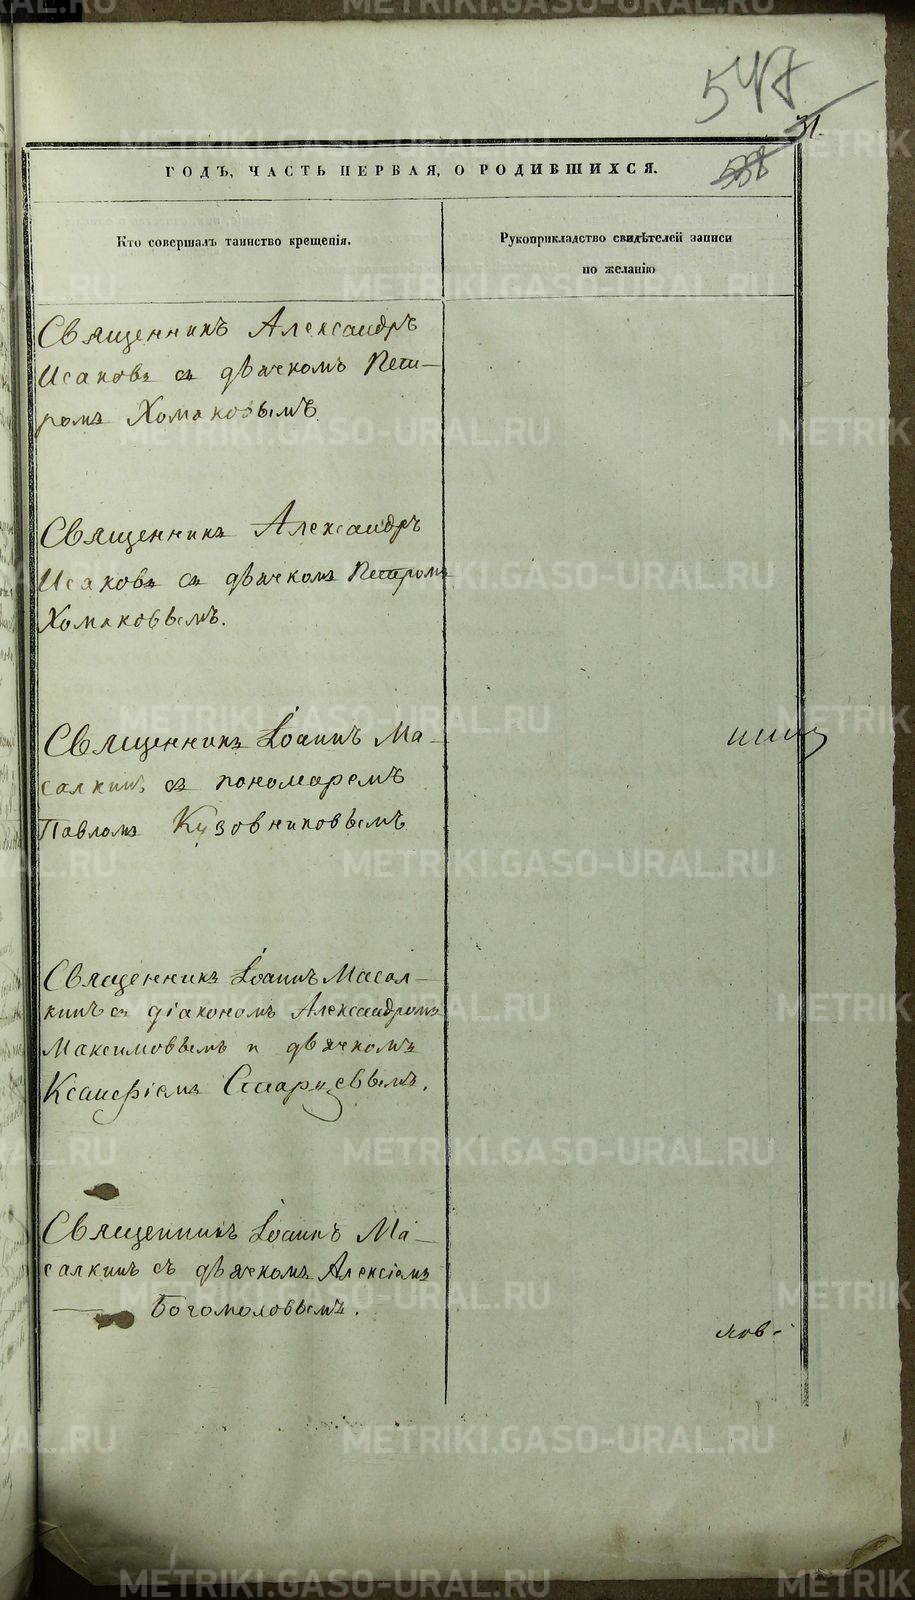 547
31.
538
ГОДЪ, ЧАСТЬ ПЕРВАЯ, О РОДИВШИХСЯ.
Кто совершалъ таинство крещенія.
Рукоприкладство свидѣтелей записи
по желанію
Священникъ Александръ
Исаковъ съ дьячкомъ Пет-
ромъ Хомаковымъ
Священникъ Александръ
Исаковъ съ дьячкомъ Петромъ
Хомаковымъ.
Священникъ Іоаннъ Ма-
салкинъ съ пономаремъ
Павломъ Кузовниковымъ
Священникъ Іоаннъ Масал-
кинъ съ діакономъ Александромъ
Максимовымъ и дьячкомъ
Ксанфіемъ Старцевымъ.
Священникъ Іоаннъ Ма-
салкинъ съ дьячкомъ Алексіемъ
Богомоловымъ.
METRIKI.GASO-URAL.RU